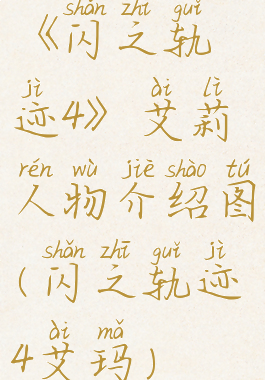 shǎn zhī guǐ
《闪之轨
jì ài lì
迹4》 艾莉
rén wù jiè shào tú
人物介绍图
shǎn zhī guǐ jì
(闪之轨迹
ài mǎ
4艾玛)